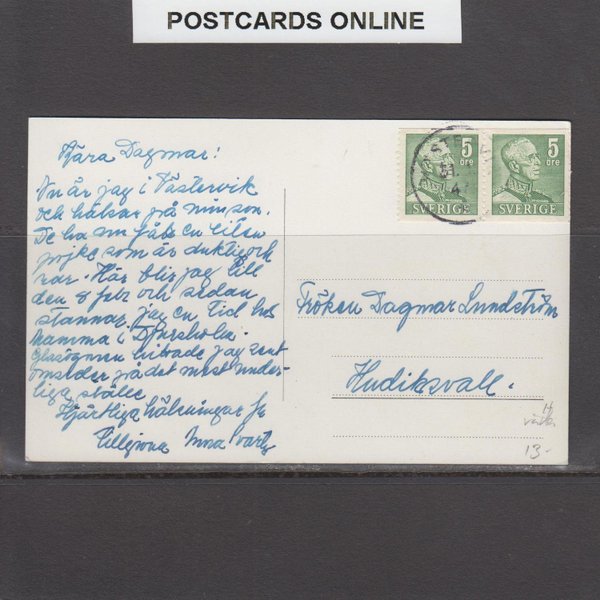 POSTCARDS ONLINE
5 öre
SVERIGE
5 öre
SVERIGE
Kära Dagmar!
Nu är jag i Västervik
och hälsar på min son.
De ha nu fått en liten
pojke som är duktig och
rar. Här blir jag till
den 8 febr och sedan
stannar jag en tid hos
hamma i Djursholm.
Glasögonen hittade jag sent
omsider på det mest under-
liga ställe.
Hjärtliga hälsningar fr
Tillgivna Anna
Fröken Dagmar Lundström
Hudiksvall.
13-